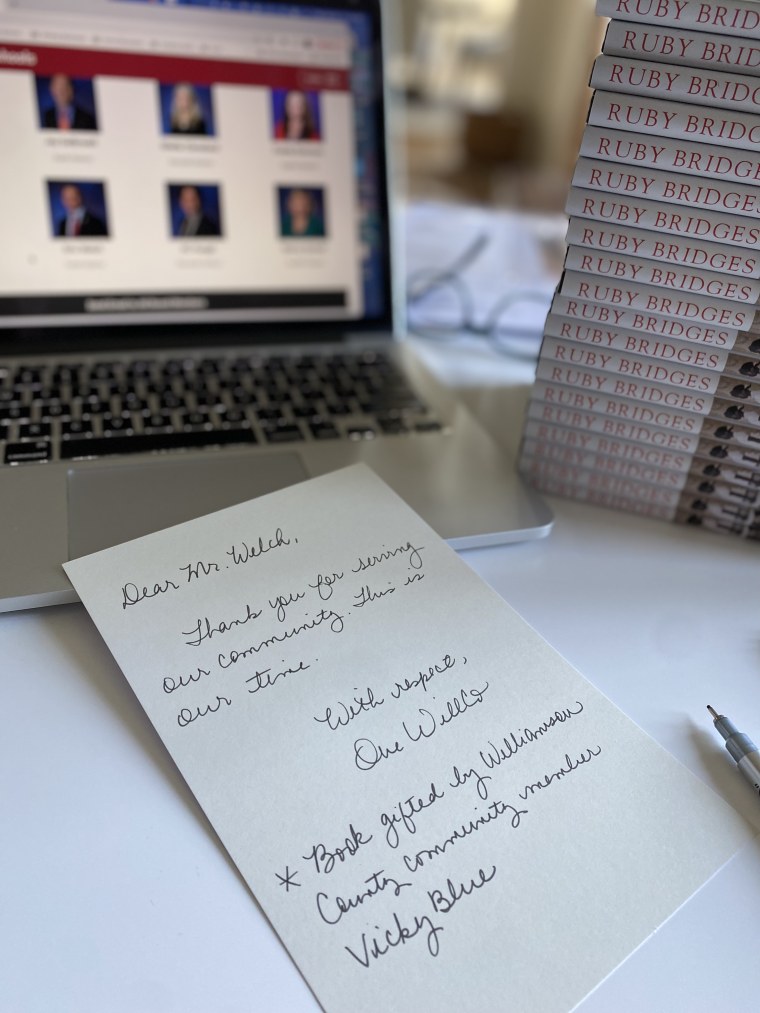 RUBY BRID
RUBY BRID
RUBY BRIDG
RUBY BRIDG
RUBY BRIDGE
RUBY BRIDGES
RUBY BRIDGES
RUBY BRIDGES
RUBY BRIDGES
RUBY BRIDGES
RUBY BRIDGES
RUBY BRIDGES
RUBY BRIDGES
RUBY BRIDGES
RUBY BRIDGES
RUBY BRIDGES
RUBY BRIDGES
RUBY BRIDGES
Dear Mr. Welch,
Thank you for serving
our community. This is
our time.
With respect,
One WillCo
* Book gifted by Williamson
County community member
Vicky Blue